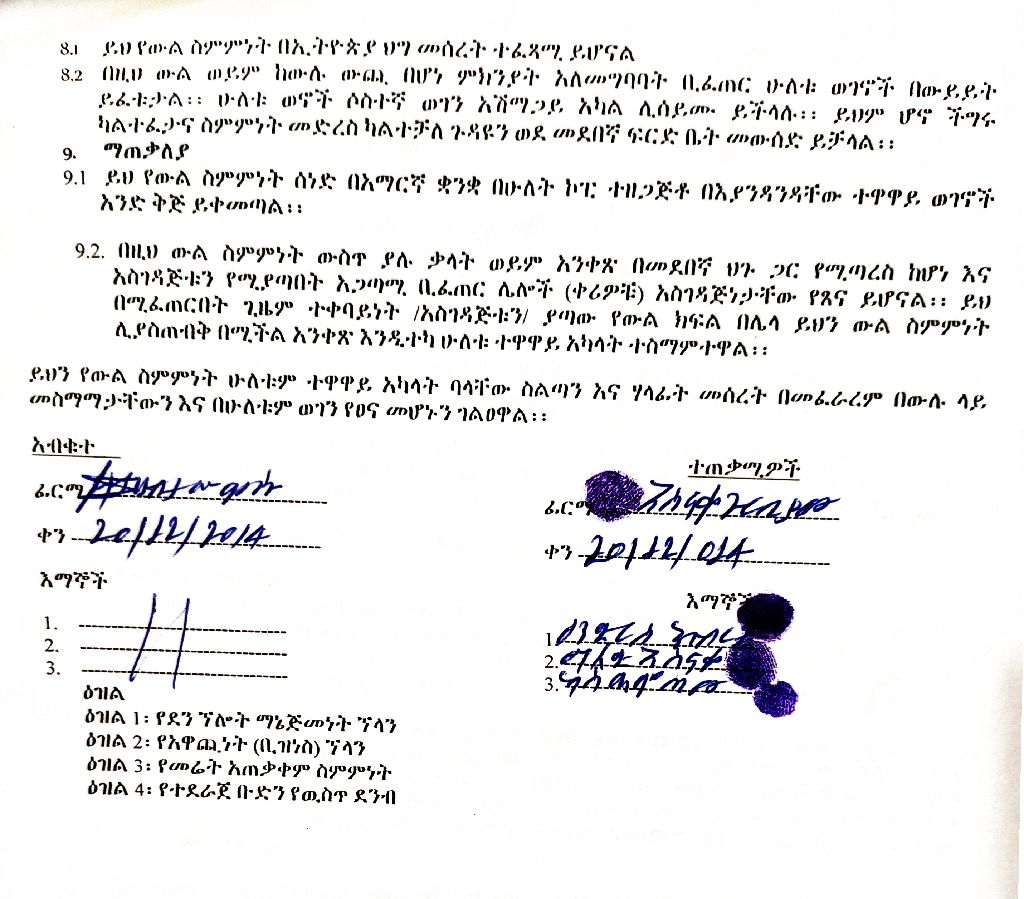 8.1 ይህ የውል ስምምነት በኢትዮጵያ ህግ መሰረት ተፈጻሚ ይሆናል
8.2 በዚህ ውል ወይም ከውሉ ውጪ በሆነ ምክንያት አለመግባባት ቢፈጠር ሁለቱ ወገኖች በውይይት
ይፈቱታል፡፡ ሁለቱ ወኖች ሶስተኛ ወገን አሸማጋይ አካል ሊሰይሙ ይችላሉ፡፡ ይህም ሆኖ ችግሩ
ካልተፈታና ስምምነት መድረስ ካልተቻለ ጉዳዩን ወደ መደበኛ ፍርድ ቤት መውሰድ ይቻላል፡፡
9. ማጠቃለያ
9.1 ይህ የውል ስምምነት ሰነድ በአማርኛ ቋንቋ በሁለት ኮፒ ተዘጋጅቶ በእያንዳንዳቸው ተዋዋይ ወገኖች
አንድ ቅጅ ይቀመጣል፡፡
9.2. በዚህ ውል ስምምነት ውስጥ ያሉ ቃላት ወይም አንቀጽ በመደበኛ ህጉ ጋር የሚጣረስ ከሆነ እና
አስገዳጅቱን የሚያጣበት አጋጣሚ ቢፈጠር ሌሎች (ቀሪዎቹ) አስገዳጅነታቸው የጸና ይሆናል፡፡ ይህ
በሚፈጠርበት ጊዜም ተቀባይነት /አስገዳጅቱን/ ያጣው የውል ክፍል በሌላ ይህን ውል ስምምነት
ሊያስጠብቅ በሚችል አንቀጽ እንዲተካ ሁለቱ ተዋዋይ አካላት ተስማምተዋል፡፡
ይህን የውል ስምምነት ሁለቱም ተዋዋይ አካላት ባላቸው ስልጣን እና ሃላፊት መሰረት በመፈራረም በውሉ ላይ
መስማማታቸውን እና በሁለቱም ወገን የፀና መሆኑን ገልፀዋል፡፡
አብቁተ
ፊርማ
ቀን 20/12/2014
ተጠቃሚዎች
ፊርማ
ቀን 20/12/014
እማኞች
1.
2.
3.
እማኞች
1
2.
3.
ዕዝል
ዕዝል 1፡ የደን ፕሎት ማኔጅመነት ፕላን
ዕዝል 2፡ የአዋጪነት (ቢዝነስ) ፕላን
ዕዝል 3፡ የመሬት አጠቃቀም ስምምነት
ዕዝል 4፡ የተደራጀ ቡድን የዉስጥ ደንብ